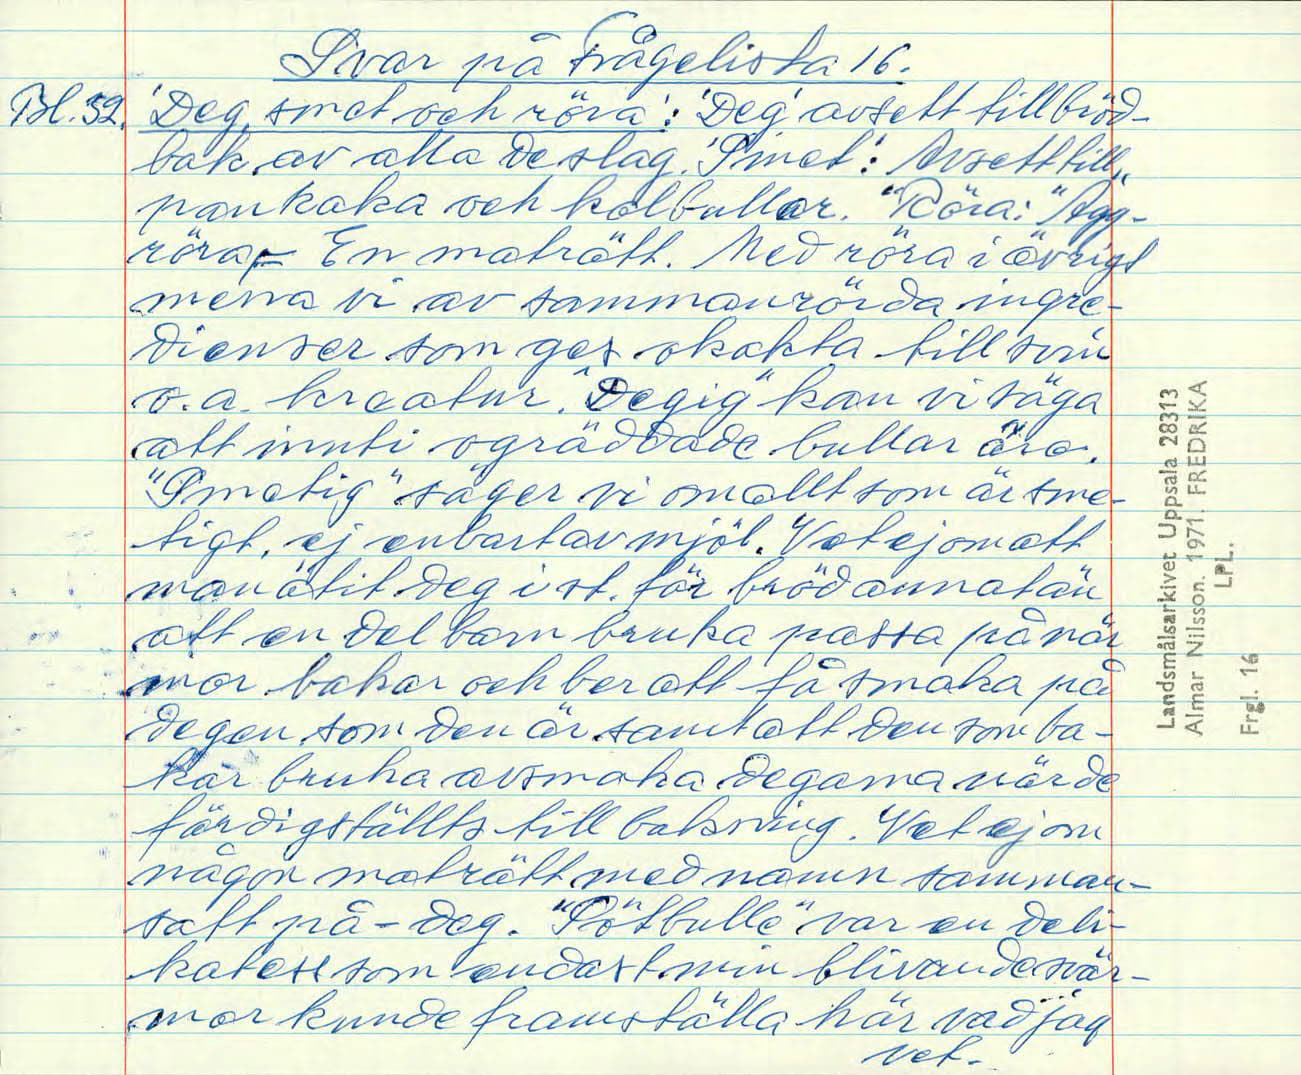 Svar på Frågelista 16.
Bl. 52. 'Deg, smet och röra': 'Deg' avsett till bröd-
bak av alla de slag. 'Smet': Avsett till
pankaka och kolbullar. "Röra:" "Ägg-
röra - En maträtt. Med röra i övrigt
mena vi av sammanrörda ingre-
dienser som ges okokta till svin
o.a. kreatur. "Degig" kan vi säga
att inuti ogräddade bullar äro.
"Smetig" säger vi om allt som är sme-
tigt, ej enbart av mjöl. Vet ej om att
man ätit deg i st. för bröd annat än
att en del barn bruka passa på när
mor bakar och ber att få smaka på
degen som den är samt att den som ba-
kar bruka avsmaka degarna när de
färdigställts till bakning. Vet ej om
någon maträtt med namn samman-
satt på - deg. "Sötbulle" var en deli-
katess som endast min blivande svär-
mor kunde framställa här vad jag
vet.
Landsmålsarkivet Uppsala 28313
Almar Nilsson. 1971. FREDRIKA
LPL.
Frgl. 16